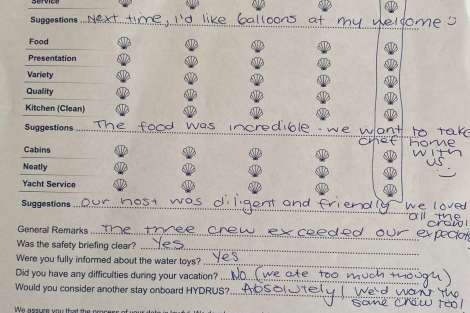 Service
Suggestions Next time, I'd like balloons at my welcome :)
Food
Presentation
Variety
Quality
Kitchen (Clean)
Suggestions The food was incredible - we want to take
chef home
with
us :)
Cabins
Neatly
Yacht Service
Suggestions Our host was diligent and friendly we loved
all the
crew!
General Remarks The three crew exceeded our expectations
Was the safety briefing clear? Yes
Were you fully informed about the water toys? Yes
Did you have any difficulties during your vacation? No (we ate too much though)
Would you consider another stay onboard HYDRUS? Absolutely! We'd want the
same crew too!
We assure you that the process of your data is